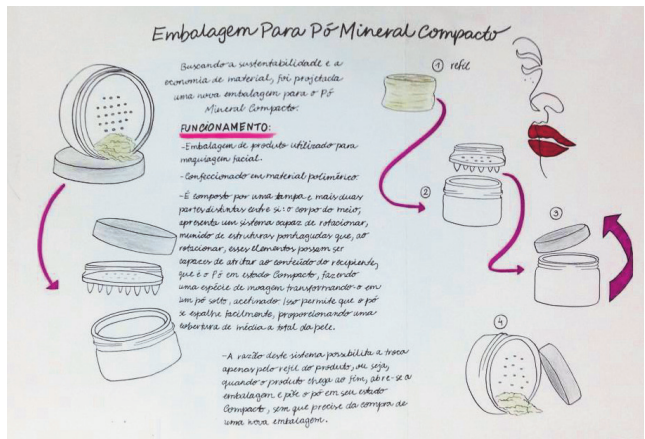 Embalagem Para Pó Mineral Compacto
Buscando a sustentabilidade e a
economia de material, foi projetada
uma nova embalagem para o Pó
Mineral Compacto.
FUNCIONAMENTO:
-Embalagem de produto utilizado para
maquiagem facial.
-Confeccionado em material polimérico.
-É composto por uma tampa e mais duas
partes distintas entre si: o corpo do meio,
apresenta um sistema capaz de rotacionar,
munido de estruturas pontiagudas que, ao
rotacionar, esses elementos possam ser
capazes de atritar ao conteúdo do recipiente,
que é o Pó em estado Compacto, fazendo
uma espécie de moagem transformando-o em
um pó solto, acetinado. Isso permite que o pó
se espalhe facilmente, proporcionando uma
cobertura de média a total da pele.
-A razão deste sistema possibilita a troca
apenas pelo refil do produto, ou seja,
quando o produto chega ao fim, abre-se a
embalagem e põe o pó em seu estado
Compacto, sem que precise da compra de
uma nova embalagem.
1 refil
2
3
4